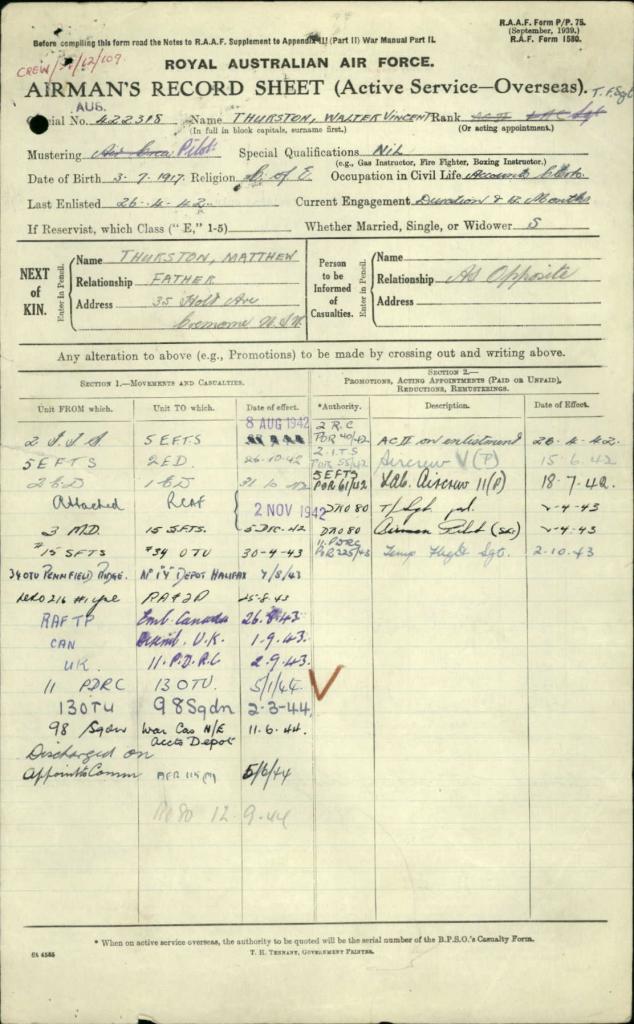 R.A.A.F. Form P/P. 75.
(September, 1939.)
R.A.F. Form 1580.
Before compiling this form read the Notes to R.A.A.F. Supplement to Appendix III (Part II) War Manual Part II.
ROYAL AUSTRALIAN AIR FORCE.
AIRMAN'S RECORD SHEET (Active Service—Overseas). T.F.Sgt
AUS.
Official No. 422318 Name THURSTON, WALTER VINCENT Rank AC II LAC Sgt
(In full in block capitals, surname first.) (Or acting appointment.)
Mustering Air Crew Pilot Special Qualifications Nil
(e.g., Gas Instructor, Fire Fighter, Boxing Instructor.)
Date of Birth 3-7-1917. Religion C. of E. Occupation in Civil Life Accounts Clerk.
Last Enlisted 26-4-42 Current Engagement Duration & 12 Months
If Reservist, which Class ("E," 1-5) Whether Married, Single, or Widower S
NEXT of KIN.
Enter in Pencil.
Name THURSTON, MATTHEW
Relationship FATHER
Address 35 Holt Ave
Cremorne N.S.W.
Person to be Informed of Casualties.
Enter in Pencil.
Name
Relationship As Opposite
Address
Any alteration to above (e.g., Promotions) to be made by crossing out and writing above.
SECTION 1.—MOVEMENTS AND CASUALTIES.
SECTION 2.—
PROMOTIONS, ACTING APPOINTMENTS (PAID OR UNPAID), REDUCTIONS, REMUSTERINGS.
Unit FROM which. Unit TO which. Date of effect. *Authority. Description. Date of Effect.
2 I.T.S 5 EFTS 8 AUG 1942 2 R.C POR 40/42 AC II on enlistment 26-4-42.
5 EFTS 2 ED. 26-10-42 2 I.T.S POR 55/42 Aircrew V (P) 15-6-42
2 ED 1 ED 31-10-42 5 EFTS POR 61/42 LAC. Aircrew II (P) 18-7-42.
Attached RCAF 2 NOV 1942 DRO 80 T/Sgt pd. -4-43
3 M.D. 15 SFTS. 5 DEC. 42 DRO 80 Airman Pilot (S.E.) -4-43
#15 SFTS #34 OTU 30-4-43 11 PDRC POR 225/43 Temp Flight Sgt. 2-10-43
34 OTU PENNFIELD RIDGE. No 1 "Y" DEPOT HALIFAX 7/8/43
25-8-43
RAF TP Emb. Canada 26.8.43
CAN Disemb. U.K. 1.9.43.
UK. 11. P.D.R.C 2.9.43.
11 PDRC 13 OTU. 5/1/44
13 OTU 98 Sqdn 2-3-44
98 Sqdn War Cas N/E Accts Depot 11.6.44.
Discharged on
Appoint. Comm AFR 5/6/44
12-9-44
* When on active service overseas, the authority to be quoted will be the serial number of the B.P.S.O.'s Casualty Form.
T. H. TENNANT, GOVERNMENT PRINTER.